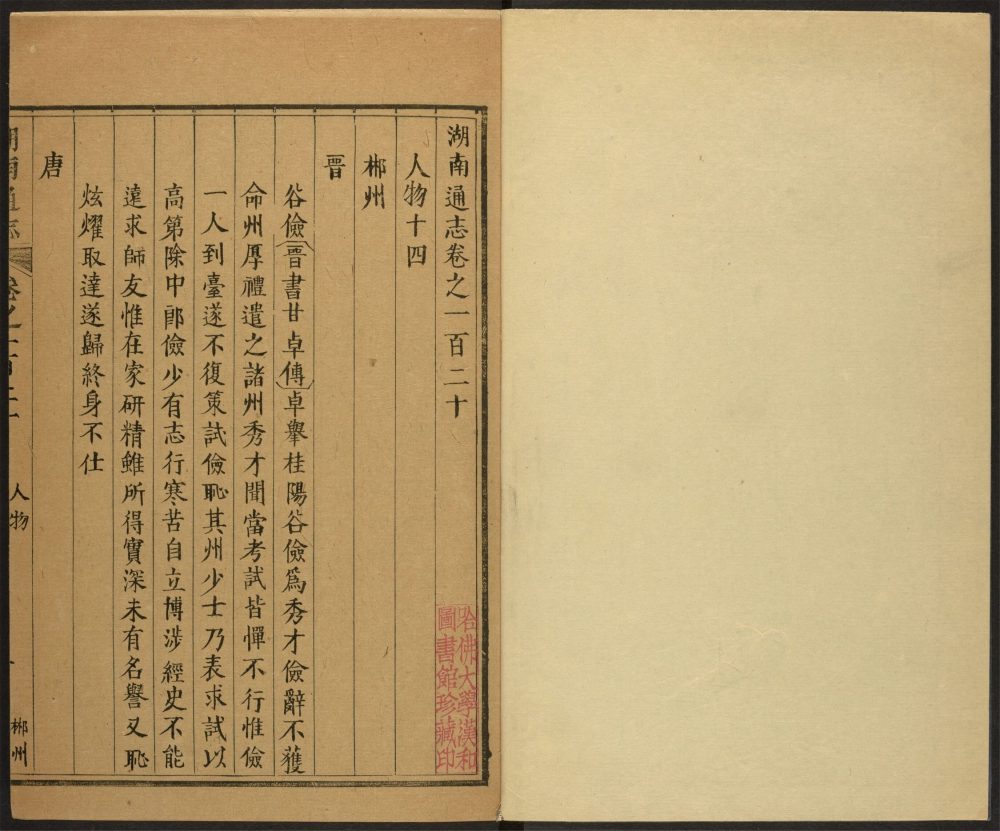 湖南通志卷之一百二十
人物十四
郴州
晉
谷儉晉書甘卓傳卓舉桂陽谷儉爲秀才儉辭不獲
命州厚禮遣之諸州秀才聞當考試皆憚不行惟儉
一人到臺遂不復策試儉恥其州少士乃表求試以
高第除中郎儉少有志行寒苦自立博涉經史不能
遠求師友惟在家研精雖所得實深未有名譽又恥
炫耀取達遂歸終身不仕
唐
湖南通志
卷之一百二十
人物
郴州
哈佛大學漢和
圖書館珍藏印